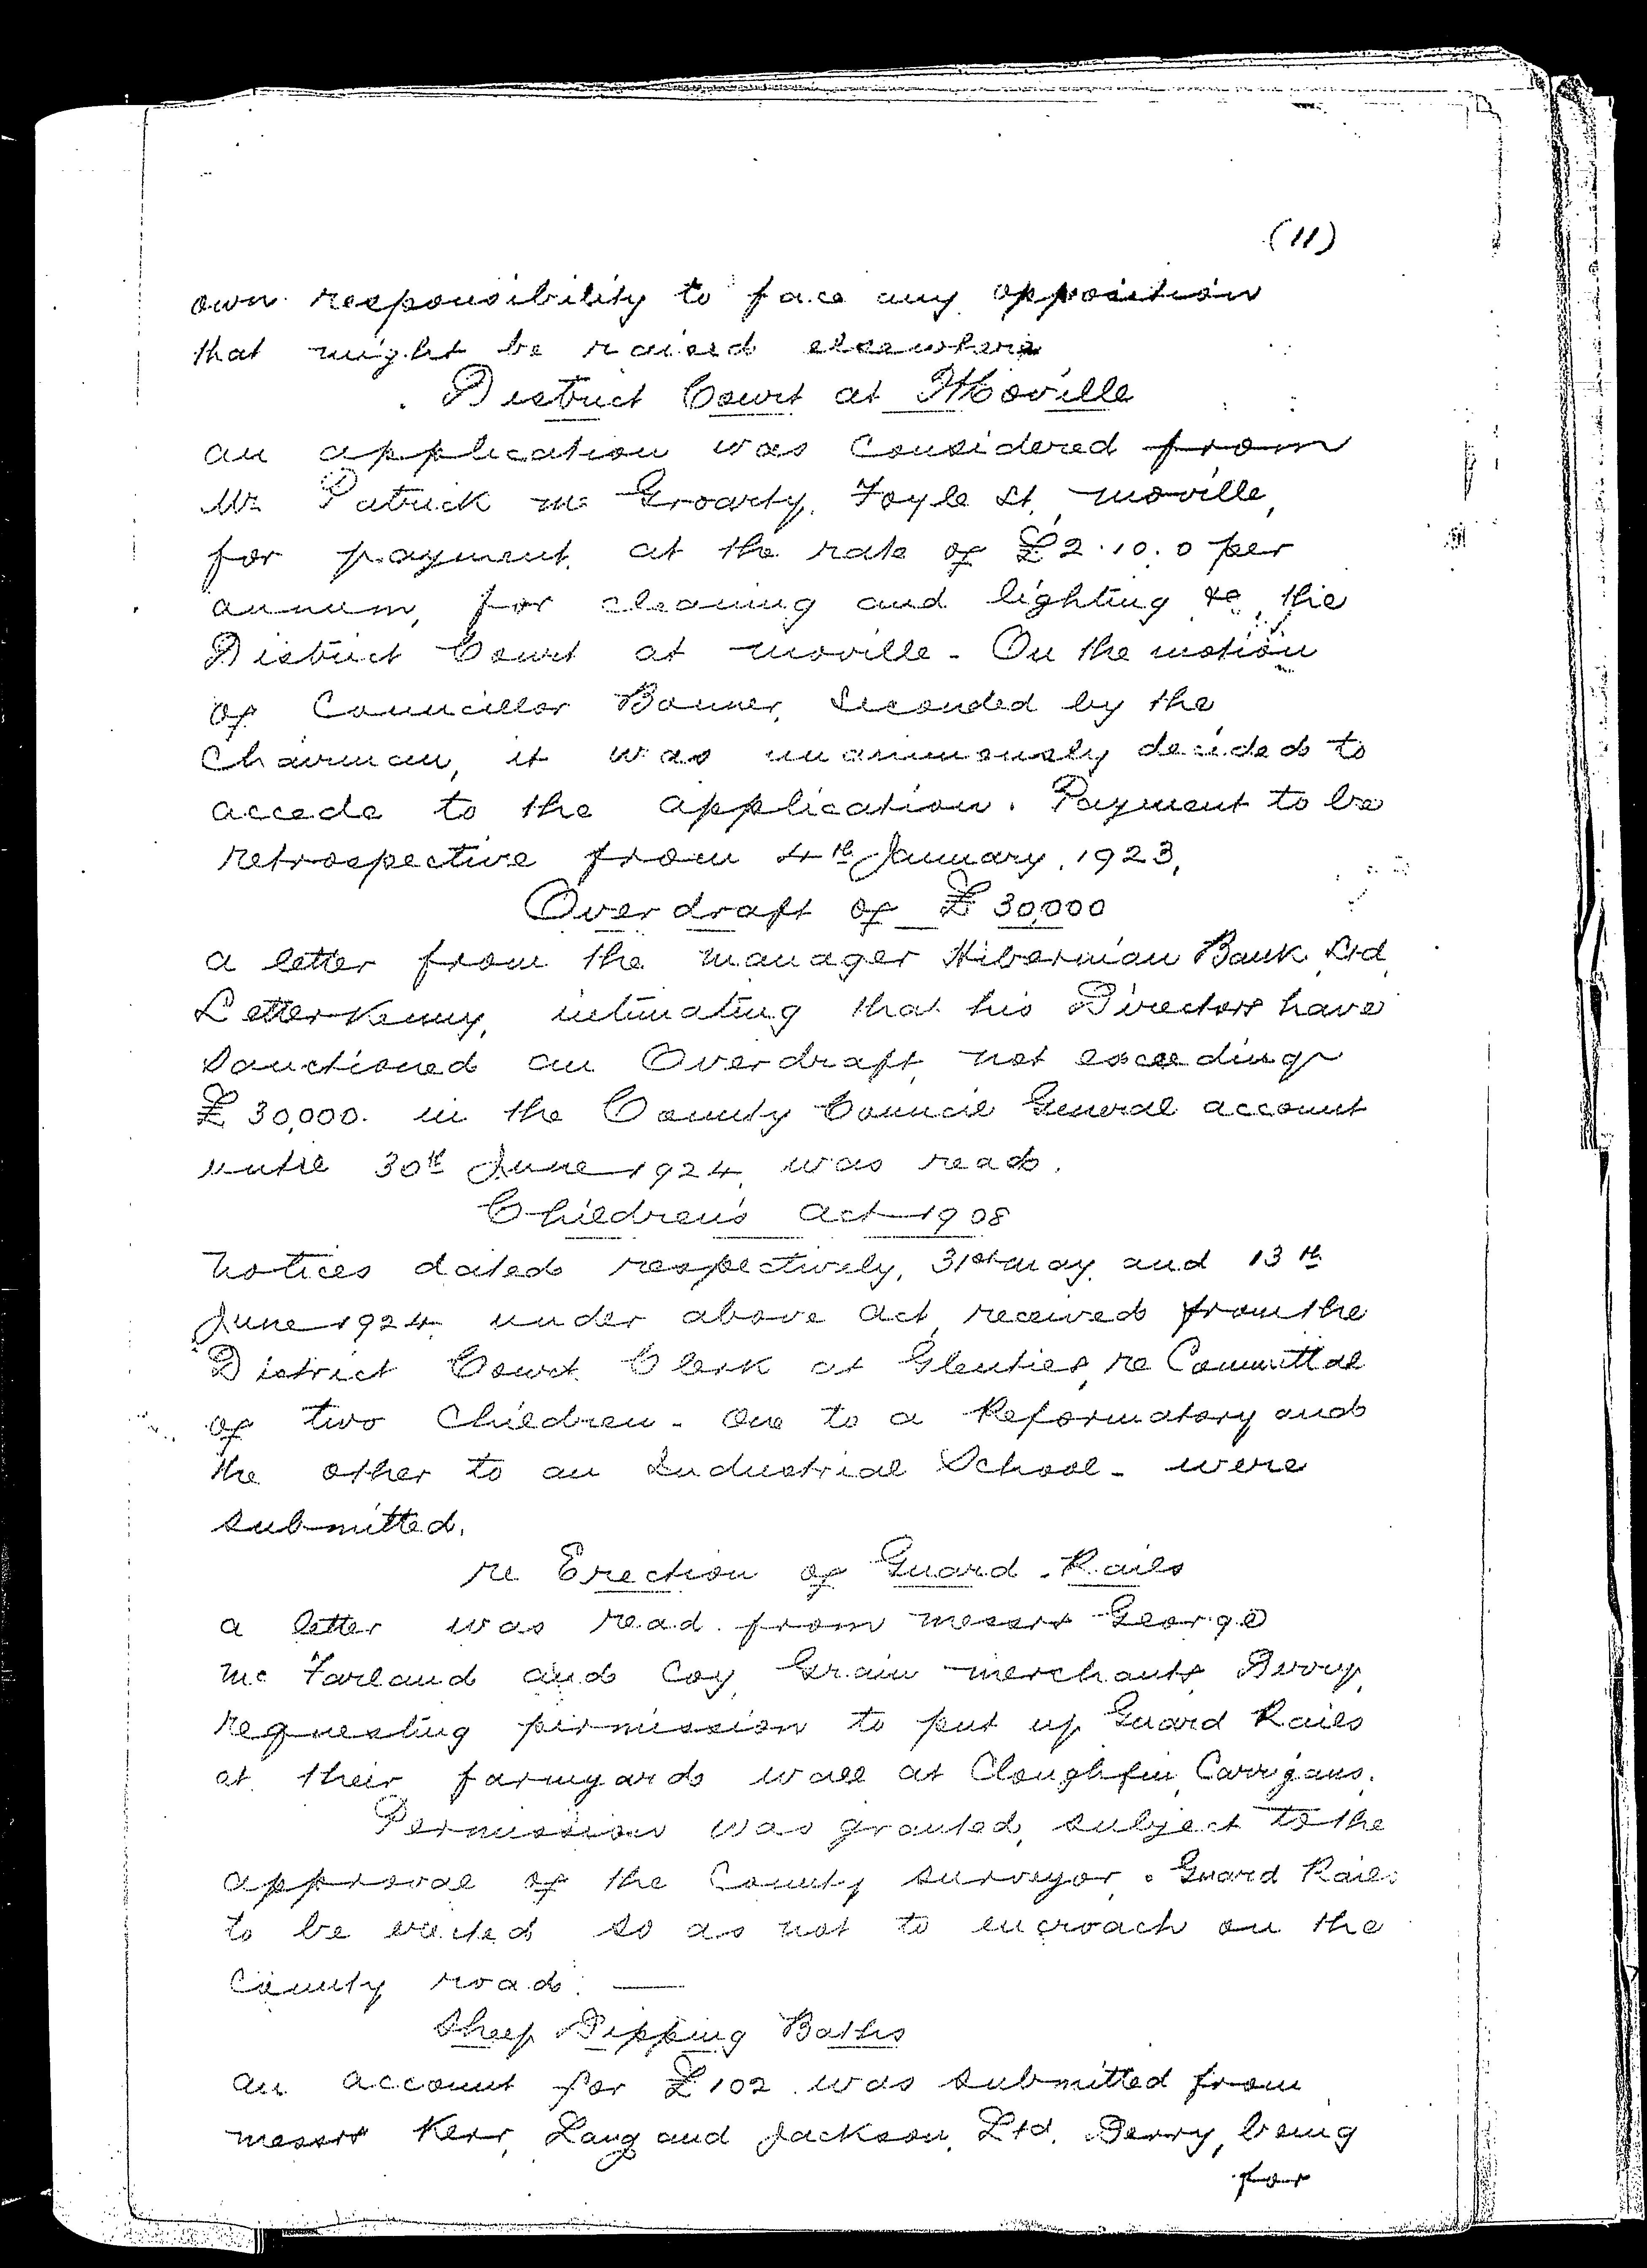 (11)
own responsibility to face any opposition
that might be raised elsewhere
District Court at Moville
an application was considered from
Mr Patrick Mc Groarty, Foyle St, Moville,
for payment at the rate of £2.10.0 per
annum, for cleaning and lighting &c, the
District Court at Moville - On the motion
of Councillor Bonner, Seconded by the
Chairman, it was unanimously decided to
accede to the application. Payment to be
retrospective from 4th January, 1923.
Overdraft of £30,000
a letter from the manager Hibernian Bank Ltd
Letterkenny, intimating that his Directors have
sanctioned an Overdraft not exceeding
£30,000. in the County Council General account
until 30th June 1924, was read.
Children's Act 1908
Notices dated respectively, 31st May and 13th
June 1924 under above act, received from the
District Court Clerk at Glenties, re Committal
of two Children - One to a Reformatory and
the other to an Industrial School - were
submitted.
re Erection of Guard-Rails
a letter was read from messrs George
Mc Farland and Coy, Grain merchants, Derry,
requesting permission to put up Guard Rails
at their farmyard wall at Cloughfin, Carrigans.
Permission was granted, subject to the
approval of the County surveyor. Guard Rails
to be erected so as not to encroach on the
County road. —
Sheep Dipping Baths
an account for £102 was submitted from
messrs Kerr, Lang and Jackson, Ltd, Derry, being
for